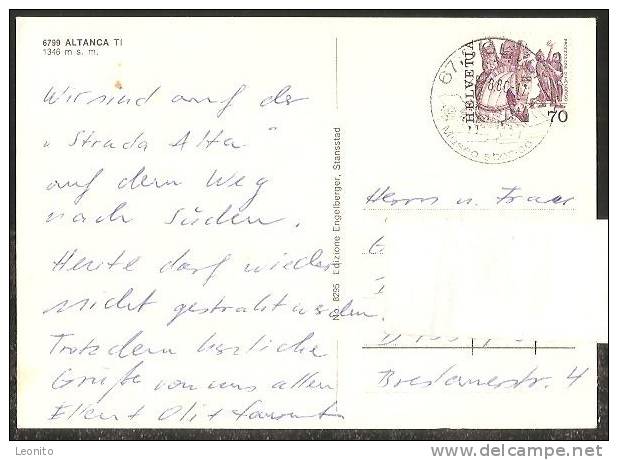 6799 ALTANCA TI
1346 m s. m.
Wir sind auf der
"Strada Alta"
auf dem Weg
nach Süden.
Heute darf wieder
nicht gestrahlt werden.
Trotzdem herzliche
Grüße von uns allen
No. 8295 Edizione Engelberger, Stansstad
HELVETIA
70
Museo
Herrn u. Frau
4
Leonito
www.delcampe.net